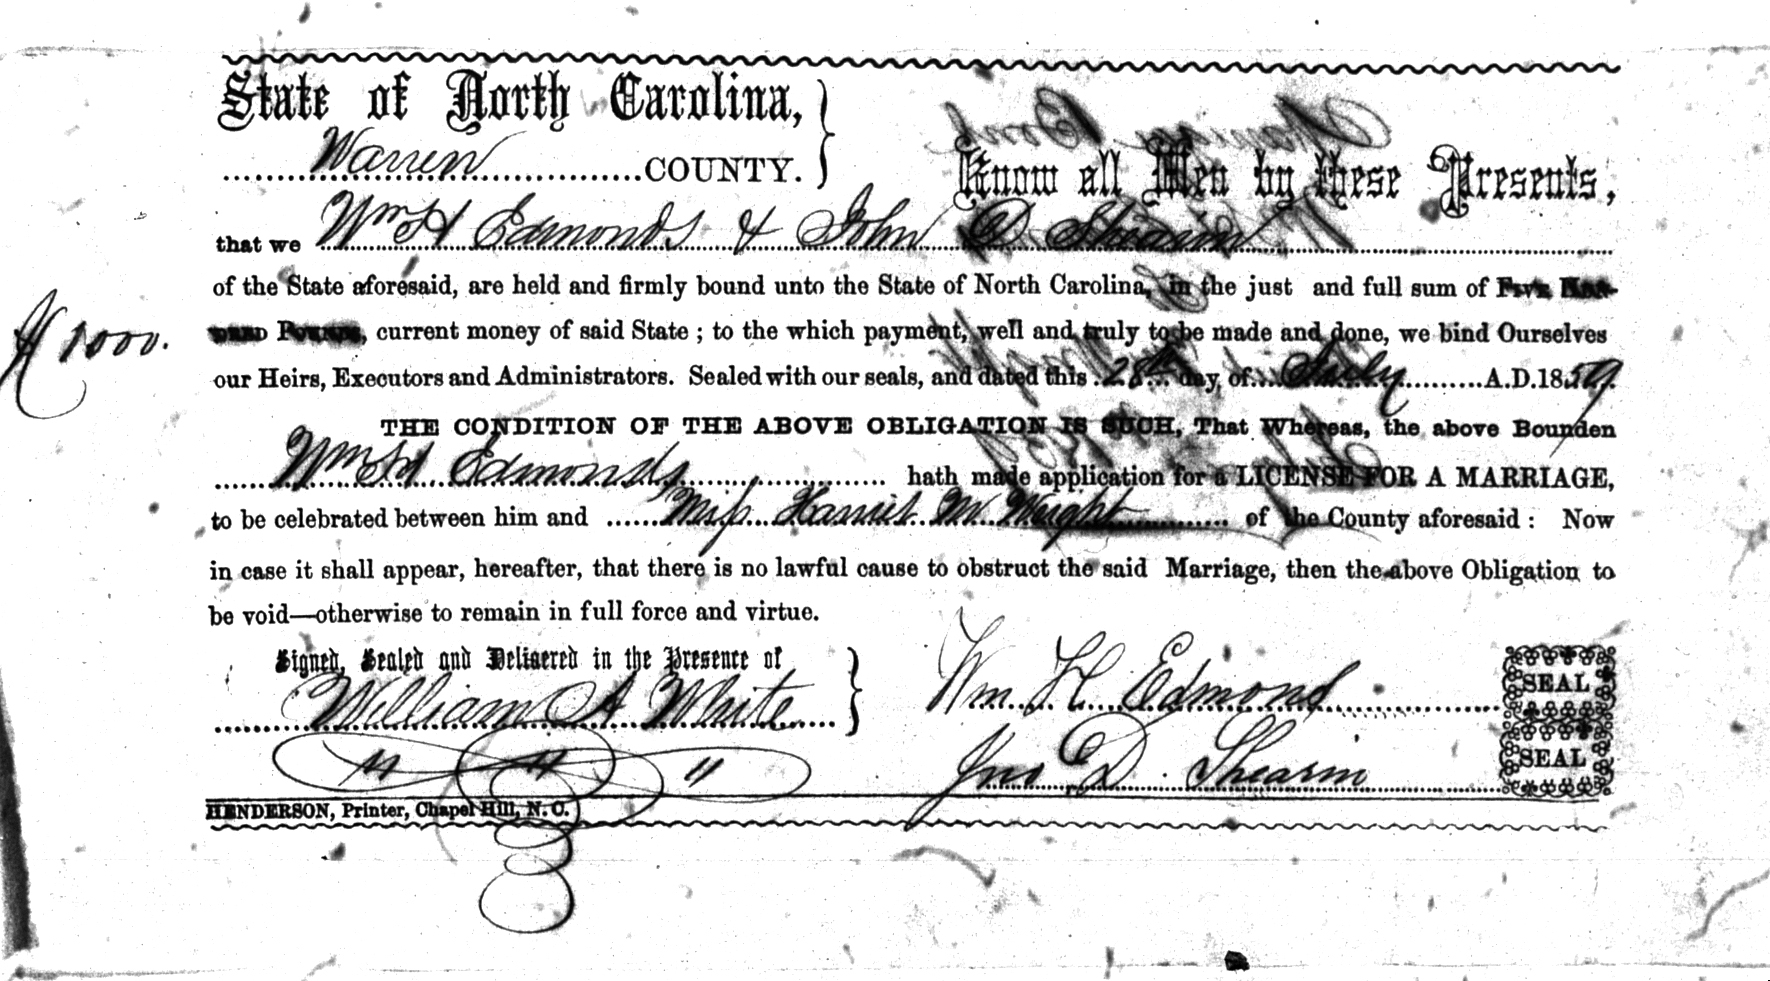 State of North Carolina,
Warren COUNTY.
Know all Men by these Presents,
that we Wm H Edmonds & John D Shearin
of the State aforesaid, are held and firmly bound unto the State of North Carolina, in the just and full sum of Five Hun-
dred Pounds, current money of said State ; to the which payment, well and truly to be made and done, we bind Ourselves
$1000.
our Heirs, Executors and Administrators. Sealed with our seals, and dated this 28th day of July A.D. 1859.
THE CONDITION OF THE ABOVE OBLIGATION IS SUCH, That Whereas, the above Bounden
Wm H Edmonds hath made application for a LICENSE FOR A MARRIAGE,
to be celebrated between him and Miss Harriet M Wright of the County aforesaid : Now
in case it shall appear, hereafter, that there is no lawful cause to obstruct the said Marriage, then the above Obligation to
be void—otherwise to remain in full force and virtue.
Signed, Sealed and Delivered in the Presence of
William A White
Wm. H. Edmond SEAL
" " "
Jno D. Shearin SEAL
HENDERSON, Printer, Chapel Hill, N. C.